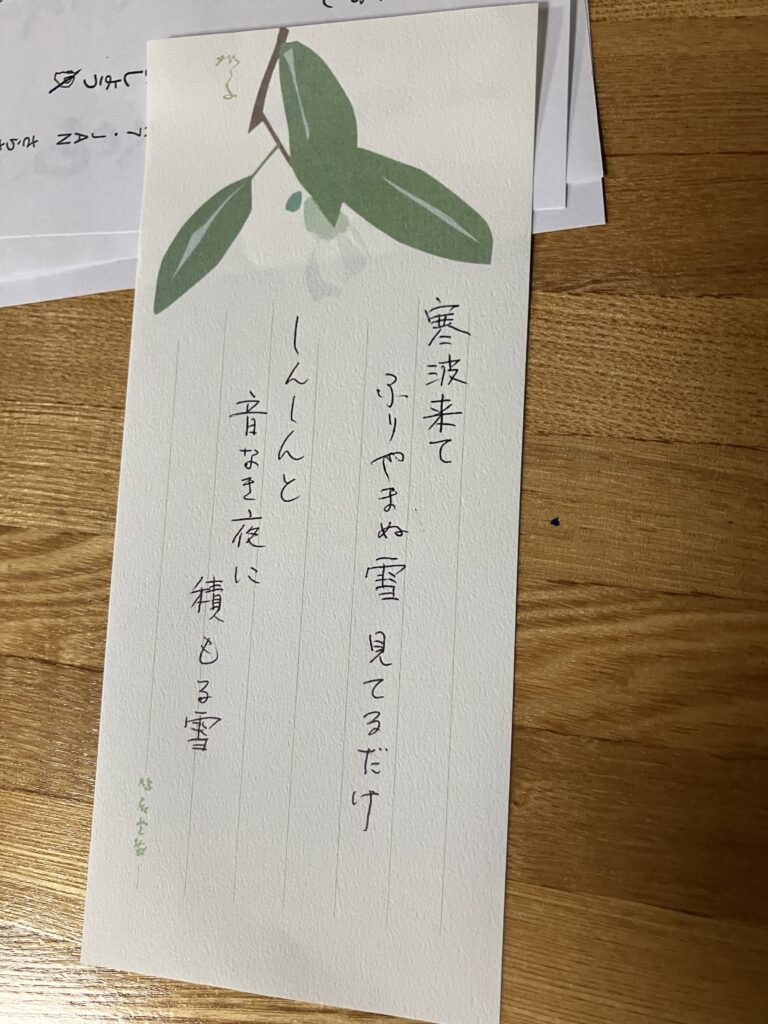 寒波来て
ふりやまぬ雪 見てるだけ
しんしんと
音なき夜に
積もる雪
しょう
7・JAN